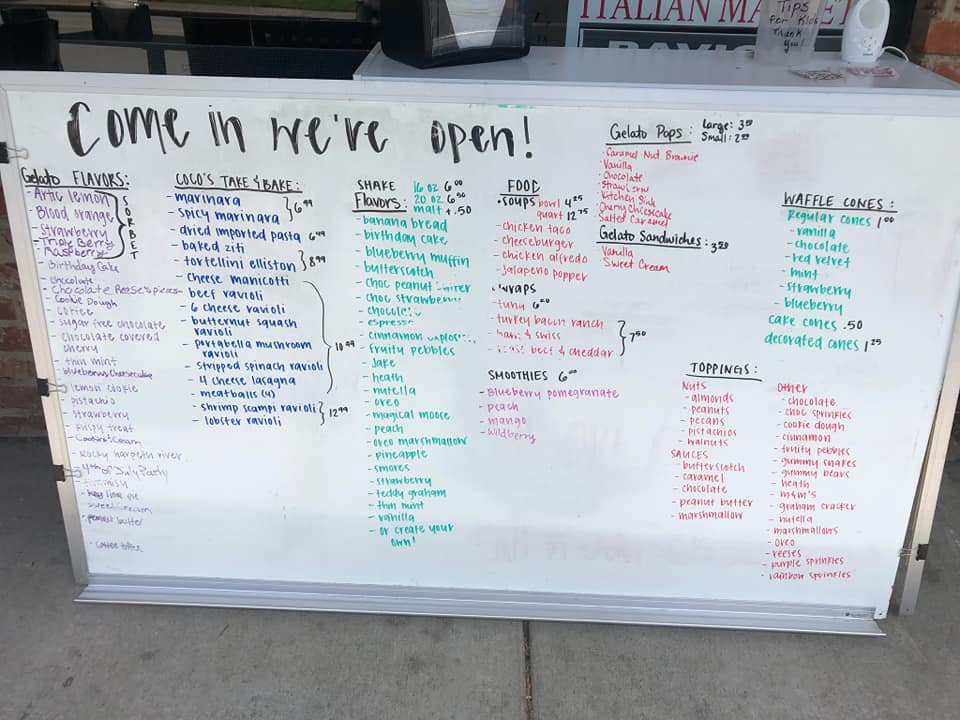 ITALIAN MARKET
TIPS
for Kids
Thank
you!
Come in we're open!
Gelato FLAVORS:
- Artic lemon
- Blood orange
- Strawberry
- Triple Berry
- Raspberry
SORBET
- Birthday Cake
- chocolate
- Chocolate Reese's pieces
- Cookie Dough
- coffee
- sugar free chocolate
- chocolate covered
cherry
- thin mint
- blueberry cheesecake
- lemon cookie
- pistachio
- strawberry
- krispy treat
- Cookies & Cream
- Rocky harpeth river
- 4th of July Party
- key lime pie
- sweet cream
- peanut butter
- coffee toffee
COCO'S TAKE & BAKE:
- marinara
- spicy marinara
6.99
- dried imported pasta 6.99
- baked ziti
- tortellini elliston
8.99
- cheese manicotti
- beef ravioli
- 6 cheese ravioli
- butternut squash
ravioli
- portabella mushroom
ravioli
- stripped spinach ravioli
- 4 cheese lasagna
- meatballs (4)
10.99
- shrimp scampi ravioli
- lobster ravioli
12.99
SHAKE
Flavors:
16 oz 6.00
20 oz 6.50
malt + .50
- banana bread
- birthday cake
- blueberry muffin
- butterscotch
- choc peanut butter
- choc strawberry
- chocolate
- espresso
- cinnamon explosion
- fruity pebbles
- jake
- heath
- nutella
- oreo
- magical moose
- peach
- oreo marshmallow
- pineapple
- smores
- strawberry
- teddy graham
- thin mint
- vanilla
- or create your
own!
FOOD
SOUPS bowl 4.25
quart 12.75
- chicken taco
- cheeseburger
- chicken alfredo
- jalapeno popper
wraps
- tuna 6.00
- turkey bacon ranch
- ham & swiss
- roast beef & cheddar
7.50
SMOOTHIES 6.00
- Blueberry pomegranate
- peach
- mango
- wildberry
Gelato Pops:
Large: 3.50
Small: 2.50
- Caramel Nut Brownie
- Vanilla
- Chocolate
- Strawberry
- Kitchen Sink
- Cherry Cheesecake
- Salted Caramel
Gelato Sandwiches: 3.50
Vanilla
Sweet Cream
WAFFLE CONES:
Regular cones 1.00
- vanilla
- chocolate
- red velvet
- mint
- strawberry
- blueberry
cake cones .50
decorated cones 1.25
TOPPINGS:
Nuts
- almonds
- peanuts
- pecans
- pistachios
- walnuts
SAUCES
- butterscotch
- caramel
- chocolate
- peanut butter
- marshmallow
Other
- chocolate
- choc sprinkles
- cookie dough
- cinnamon
- fruity pebbles
- gummy snakes
- gummy bears
- heath
- m&m's
- graham cracker
- nutella
- marshmallows
- oreo
- reeses
- purple sprinkles
- rainbow sprinkles